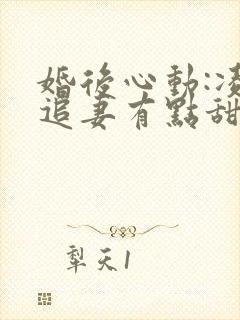 婚後心動:凌
追妻有點甜
犁天1